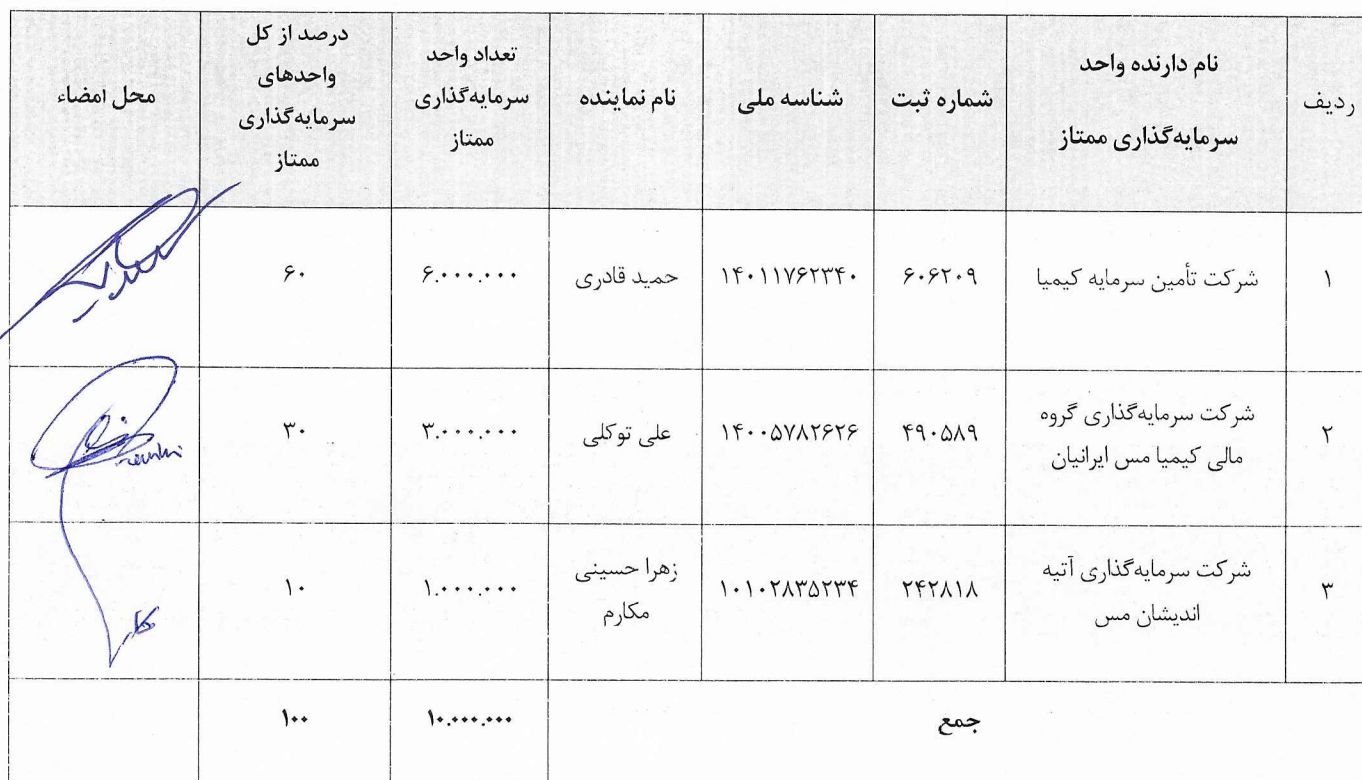 ردیف
نام دارنده واحد
سرمایه‌گذاری ممتاز
شماره ثبت
شناسه ملی
نام نماینده
تعداد واحد
سرمایه‌گذاری
ممتاز
درصد از کل
واحدهای
سرمایه‌گذاری
ممتاز
محل امضاء
۱
شرکت تأمین سرمایه کیمیا
۶۰۶۲۰۹
۱۴۰۱۱۷۶۲۳۴۰
حمید قادری
۶.۰۰۰.۰۰۰
۶۰
۲
شرکت سرمایه‌گذاری گروه
مالی کیمیا مس ایرانیان
۴۹۰۵۸۹
۱۴۰۰۵۷۸۲۶۲۶
علی توکلی
۳.۰۰۰.۰۰۰
۳۰
۳
شرکت سرمایه‌گذاری آتیه
اندیشان مس
۲۴۲۸۱۸
۱۰۱۰۲۸۳۵۲۳۴
زهرا حسینی
مکارم
۱.۰۰۰.۰۰۰
۱۰
جمع
۱۰.۰۰۰.۰۰۰
۱۰۰